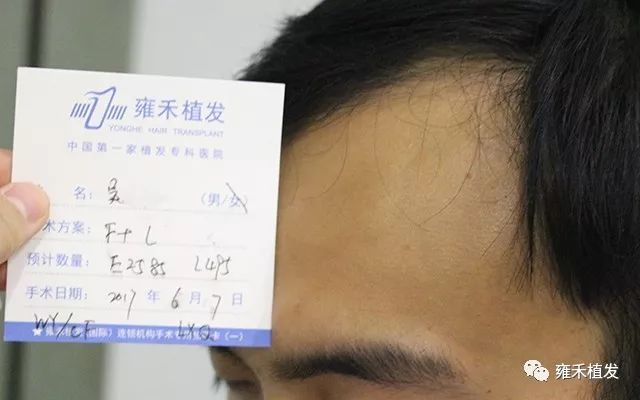 雍禾植发
YONGHE HAIR TRANSPLANT
中国第一家植发专科医院
名：吴 （男/女）
术方案：F+L
预计数量：E2585 L495
手术日期：2017年6月7日
WY/CF LYQ
国际）连锁机构手术专用 卡（一）
雍禾植发